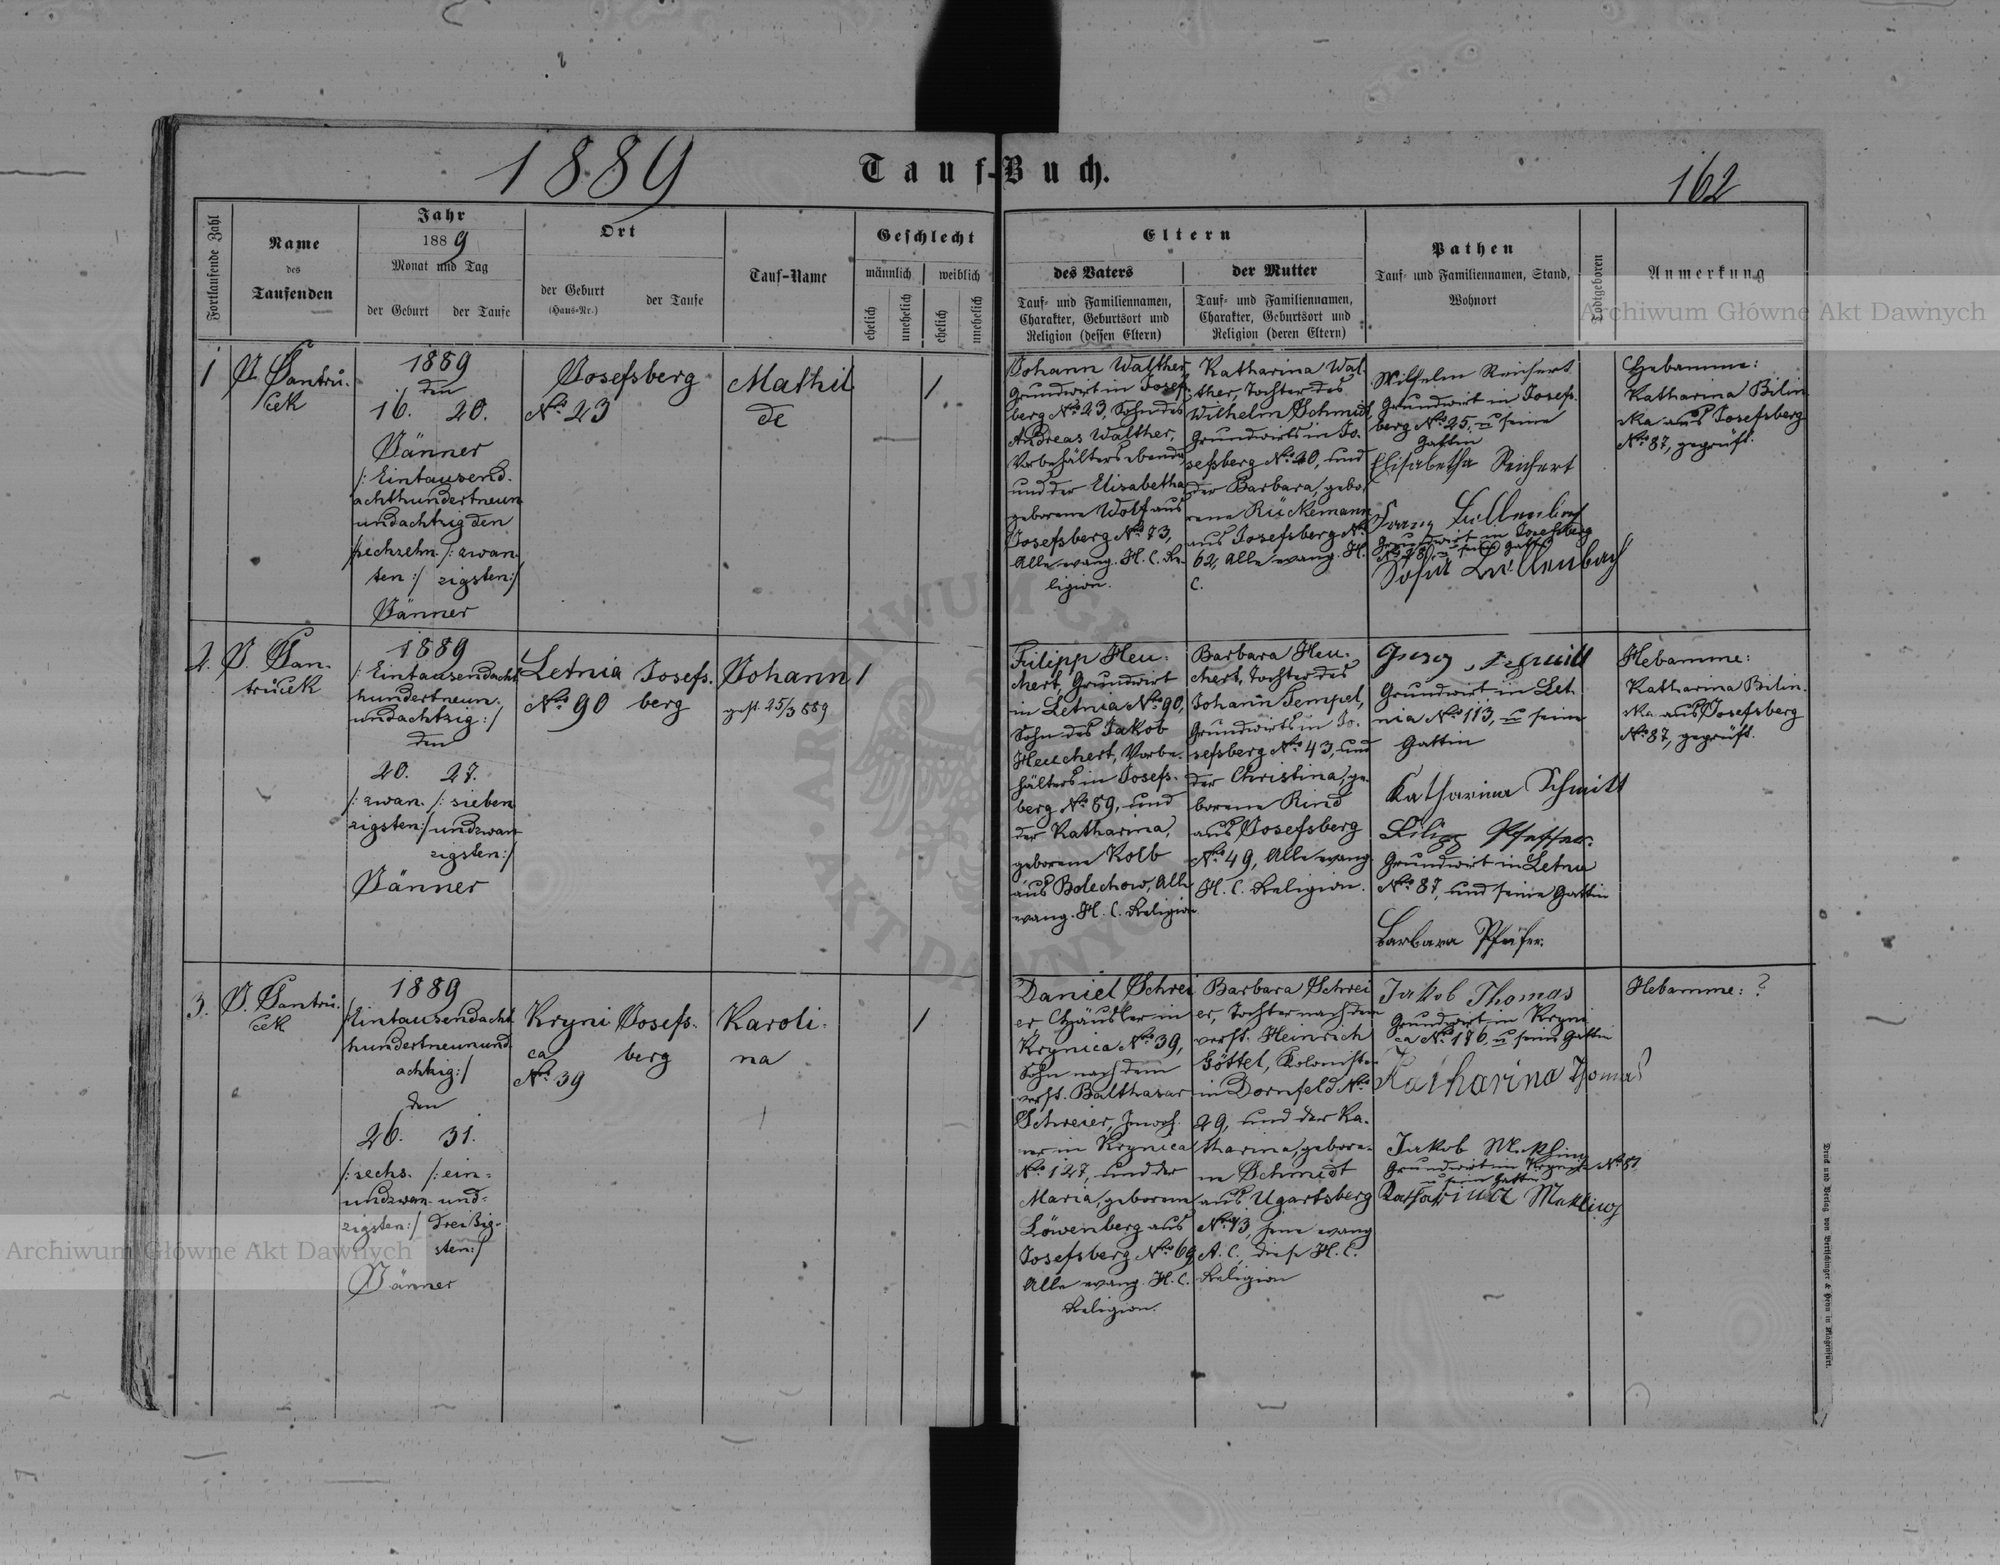 1889
Tauf-Buch.
162
Fortlaufende Zahl
Name
des
Taufenden
Jahr
1889
Monat und Tag
der Geburt
der Taufe
Ort
der Geburt
(Haus-Nr.)
der Taufe
Tauf-Name
Geschlecht
männlich
weiblich
ehelich
unehelich
ehelich
unehelich
Eltern
des Vaters
Tauf- und Familiennamen,
Charakter, Geburtsort und
Religion (dessen Eltern)
der Mutter
Tauf- und Familiennamen,
Charakter, Geburtsort und
Religion (deren Eltern)
Pathen
Tauf- und Familiennamen, Stand,
Wohnort
Todtgeboren
Anmerkung
1
J. Jantrů-
cek
1889
den
16. 20.
Jänner
/: Eintausend.
achthundertneun
undachtzig den
sechzehn- /: zwan-
ten :/ zigsten:/
Jänner
Josefsberg
No. 23
Mathil
de
1
Johann Walther
Grundwirt in Josef
berg No. 23, Sohn des
Andreas Walther,
Vorbehälters ebenda
und der Elisabetha
geborene Wolf aus
Josefsberg No. 73,
Alle evang. H. C. Re-
ligion.
Katharina Wal
ther, Tochter des
Wilhelm Schmidt,
Grundwirts in Jo-
sefsberg No. 40, und
der Barbara, gebo-
rene Rückemann
aus Josefsberg No.
62, Alle evang. H.
C.
Wilhelm Reichert
Grundwirt in Josefs-
berg No. 25, u seine
Gattin
Elisabetha Reichert
Grundwirt in Josefsberg
No. 78 u seine Gattin
Sofia Lullenbach
Hebamme:
Katharina Bilin
ska aus Josefsberg
No. 87, geprüft.
2.
J. Jan-
trůcek
1889
/: Eintausendacht
hundertneun-
undachtzig :/
den
20. 27.
/: zwan- /: sieben
zigsten:/ undzwan
zigsten:/
Jänner
Letnia
No. 90
Josefs-
berg
Johann
gest. 25/3 889
1
Filipp Heu-
chert, Grundwirt
in Letnia No. 90,
Sohn des Jakob
Heuchert, Vorbe-
hälters in Josefs-
berg No. 89, und
der Katharina,
geborene Kolb
aus Bolechow, Alle
evang. H. C. Religion
Barbara Heu-
chert, Tochter des
Johann Tempel,
Grundwirts in Jo-
sefsberg No. 43, und
der Christina, ge-
borene Rind
aus Josefsberg
No. 49, Alle evang.
H. C. Religion.
Grundwirt in Let
nia No. 113, u seine
Gattin
Katharina Schmitt
Filipp Pfeffer.
Grundwirt in Letnia
No. 87, und seine Gattin
Barbara Pfeifer.
Hebamme:
Katharina Bilin-
ska aus Josefsberg
No. 87, geprüft.
3.
J. Jantrů-
cek
1889
/: Eintausendacht
hundertneunund-
achtzig:/
den
26. 31.
/: sechs- /: ein-
undzwan- und-
zigsten:/ dreißig-
sten:/
Jänner
Kryni
ca
No. 39
Josefs-
berg
Karoli-
na
1
Daniel Schrei
er, Häusler in
Krynica No. 39,
Sohn nach dem
verst. Balthasar
Schreier, Inwoh-
ner in Krynica
No. 127, und der
Maria, geborene
Löwenberg aus
Josefsberg No. 69,
Alle evang. H. C.
Religion.
Barbara Schrei
er, Tochter nach dem
verst. Heinrich
Göttel, Kolonist
in Dornfeld No.
29, und der Ka-
tharina, gebore-
ne Schmidt
aus Ugartsberg
No. 13, jene evang
A. C., diese H. C.
Religion
Jakob Thomas
Grundwirt in Kryni
ca No. 176, u seine Gattin
Katharina Thomas
Jakob Mekling
Grundwirt in Krynica No. 57
u seine Gattin
Katharina Mekling
Hebamme: ?
Druck und Verlag von Bertschinger & Heyn in Klagenfurt.
Archiwum Główne Akt Dawnych
Archiwum Główne Akt Dawnych
ARCHIWUM GŁÓWNE AKT DAWNYCH